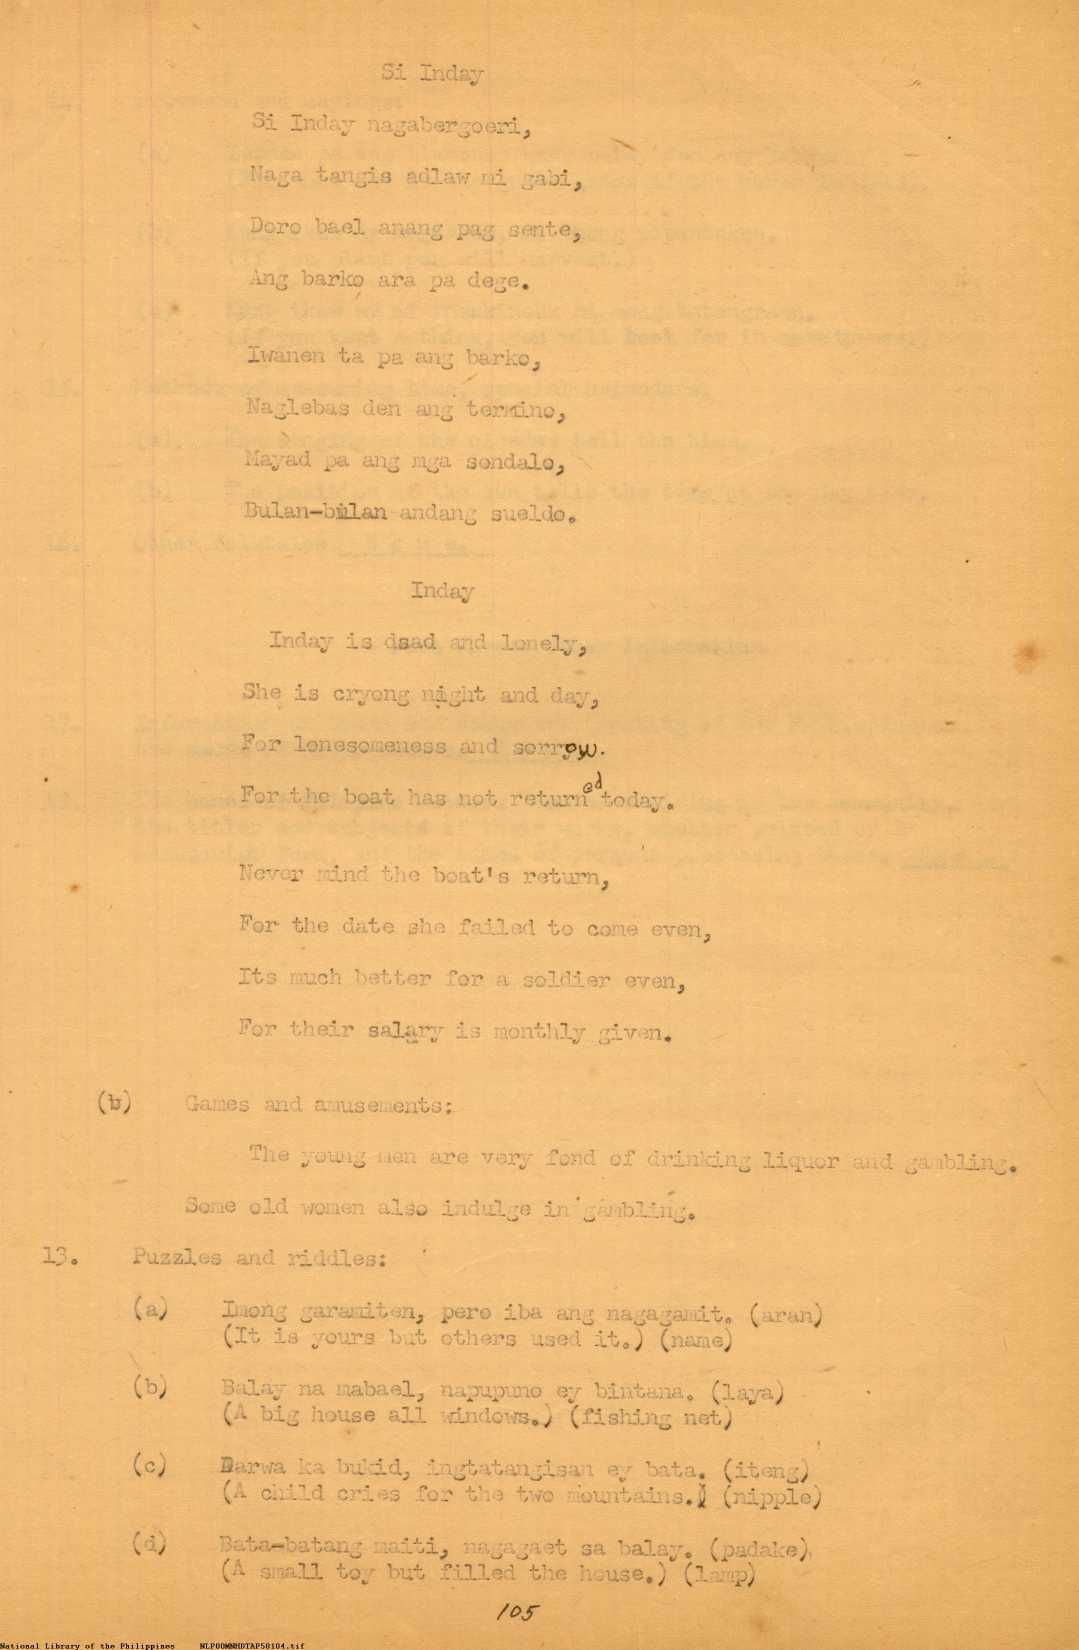 Si Inday
Si Inday nagabergoeri,
Naga tangis adlaw ni gabi,
Doro bael anang pag sente,
Ang barko ara pa dege.
Iwanen ta pa ang barko,
Naglebas den ang termino,
Mayad pa ang mga sondalo,
Bulan-bulan andang sueldo.
Inday
Inday is dsad and lonely,
She is cryong night and day,
For lonesomeness and sorrow.
For the boat has not returned today.
Never mind the boat's return,
For the date she failed to come even,
Its much better for a soldier even,
For their salary is monthly given.
(b) Games and amusements:
The young men are very fond of drinking liquor and gambling.
Some old women also indulge in gambling.
13. Puzzles and riddles:
(a) Imong garamiten, pero iba ang nagagamit. (aran)
(It is yours but others used it.) (name)
(b) Balay na mabael, napupuno ey bintana. (laya)
(A big house all windows.) (fishing net)
(c) Darwa ka bukid, ingtatangisan ey bata. (iteng)
(A child cries for the two mountains.) (nipple)
(d) Bata-batang maiti, nagagaet sa balay. (padake)
(A small toy but filled the house.) (lamp)
105
National Library of the Philippines NLP00MNHDTAP50104.tif